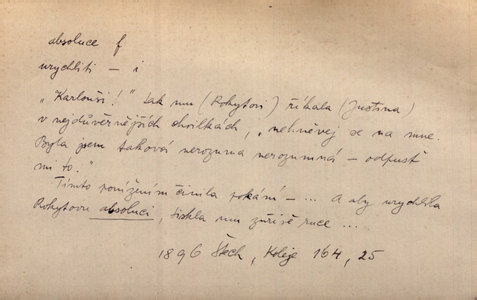 absoluce f
urychliti – i
„Karlouši!" tak mu (Rokytovi) říkala (Justina)
v nejdůvěrnějších chvilkách, „nehněvej se na mne.
Byla jsem taková nerozumna nerozumná – odpusť
mi to."
Tímto ponížením činila pokání – ... A aby urychlila
Rokytovu absoluci, tiskla mu zúřivě ruce ...
1896 Štech, Koleje 164, 25